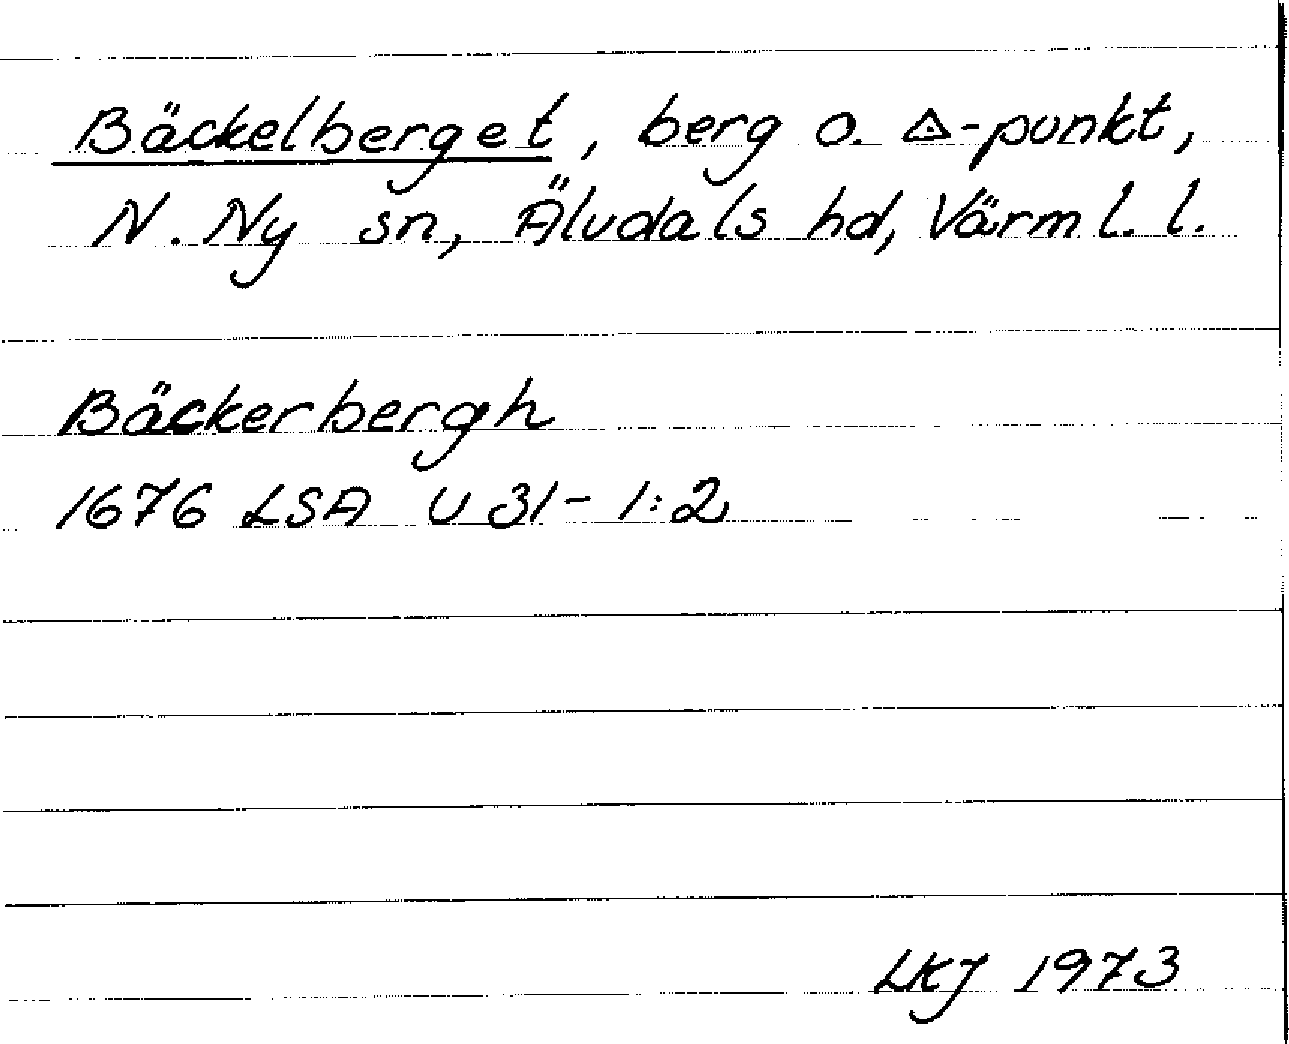 Bäckelberget, berg o. △-punkt,
N. Ny sn, Älvdals hd, Värml. l.
Bäckerbergh
1676 LSA U 31-1:2
LKJ 1973